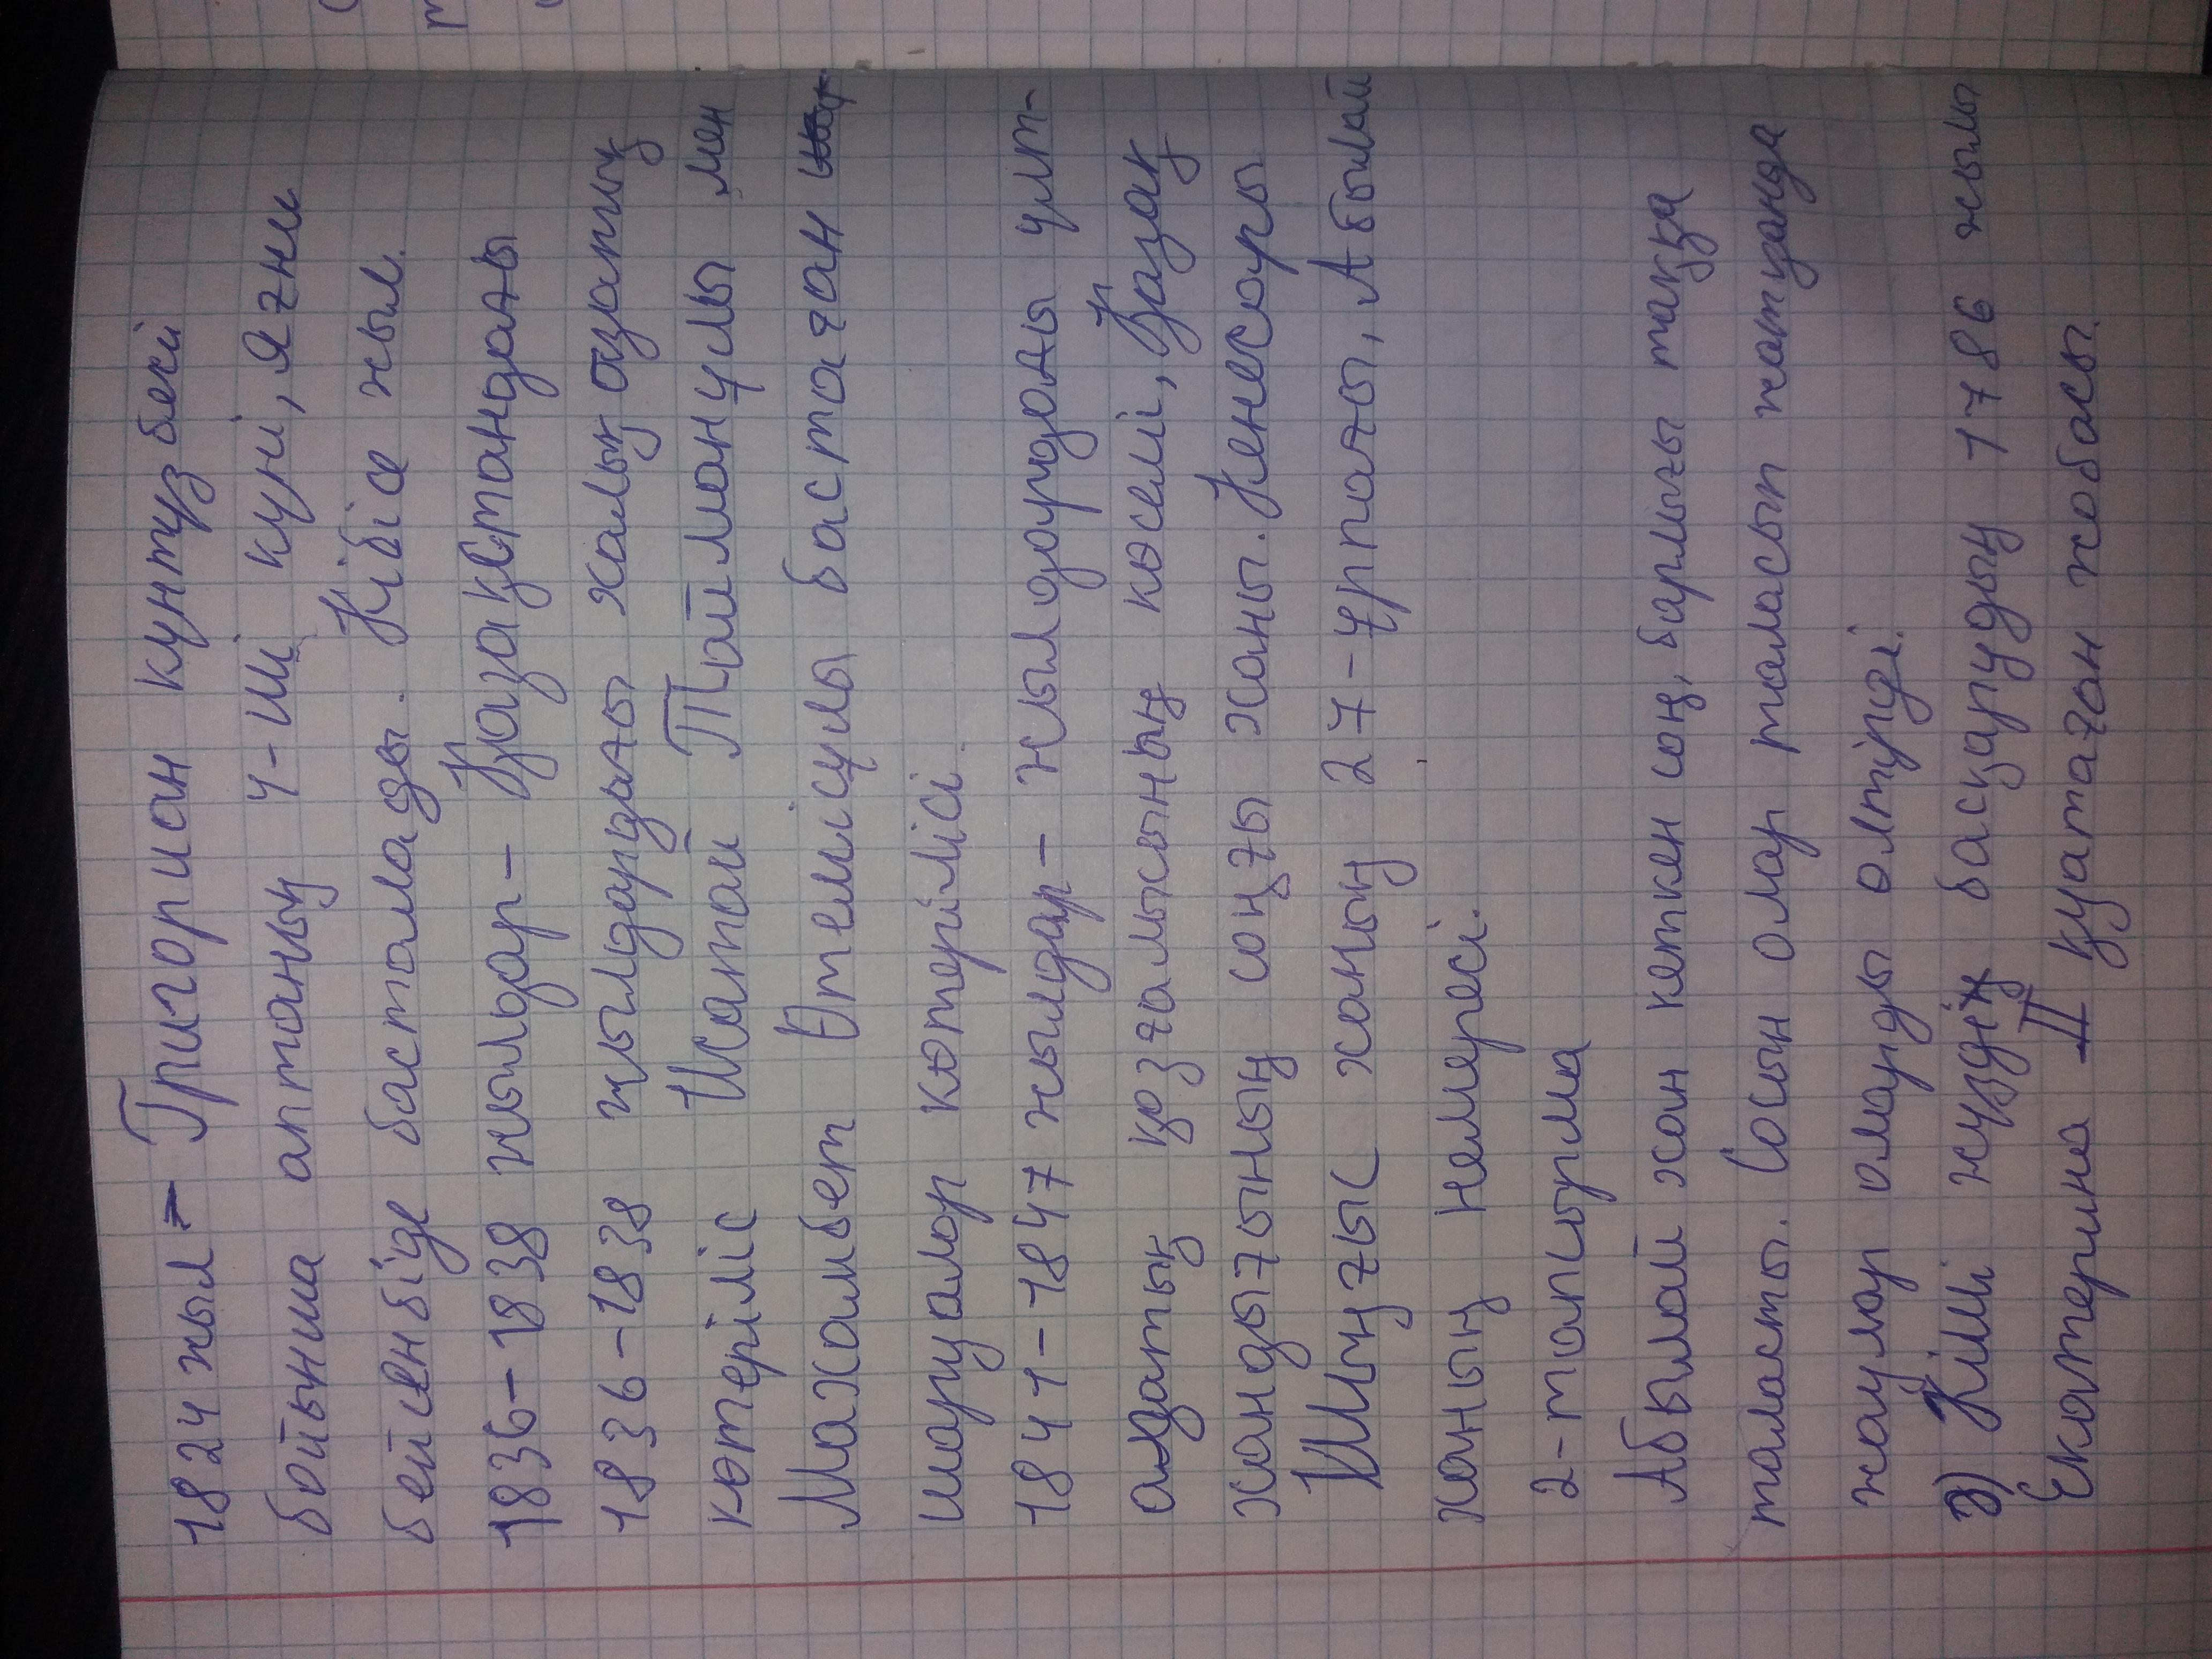 1824 жыл - Григориан күнтүзбегі
бойынша аптаның 4-ші күні, яғни
бейсенбіде басталады. Кібісе жыл.
1836-1838 жылдар - Қазақстандағы
1836-1838 жылдардағы халық азаттық
көтеріліс Исатай Тайманұлы мен
Махамбет Өтемісұлы бастаған
шаруалар көтерілісі.
1841-1847 жылдар - жылдардағы ұлт-
азаттық қозғалысының көсемі, Қазақ
хандығының соңғы ханы. Кенесары
Шыңғыс ханың 27-ұрпағы, Абылай
ханың немересі.
2-тапсырма
Абылай хан кеткен соң, барлығы таққа
таласты. Сосын олар таласып жатқанда
жаулар оларды өлтірді.
3) Кіші жүздің басқарудың 1786 жылы
Екатерина II қуатаған жобасы.